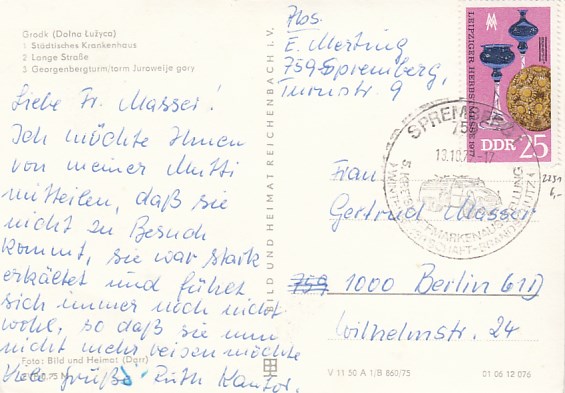 Grodk (Dolna Łužyca)
1 Städtisches Krankenhaus
2 Lange Straße
3 Georgenbergturm/torm Jurowejje gory
Liebe Fr. Masser!
Ich möchte Ihnen
von meiner Mutti
mitteilen, daß sie
nicht zu Besuch
kommt, sie war stark
erkältet und fühlt
sich immer noch nicht
wohl, so daß sie nun
nicht mehr reisen möchte
Viele Grüße Ruth Kantor.
Foto: Bild und Heimat (Darr)
BILD UND HEIMAT REICHENBACH i. V.
Abs.
E. Merting
759 Spremberg,
Turnstr. 9
LEIPZIGER HERBSTMESSE 1977
DDR 25
SPREMBERG
759
5. KREISBRIEFMARKENAUSSTELLUNG
Frau
Gertrud Masser
759 1000 Berlin 61
Wilhelmstr. 24
V 11 50 A 1/B 860/75
01 06 12 076